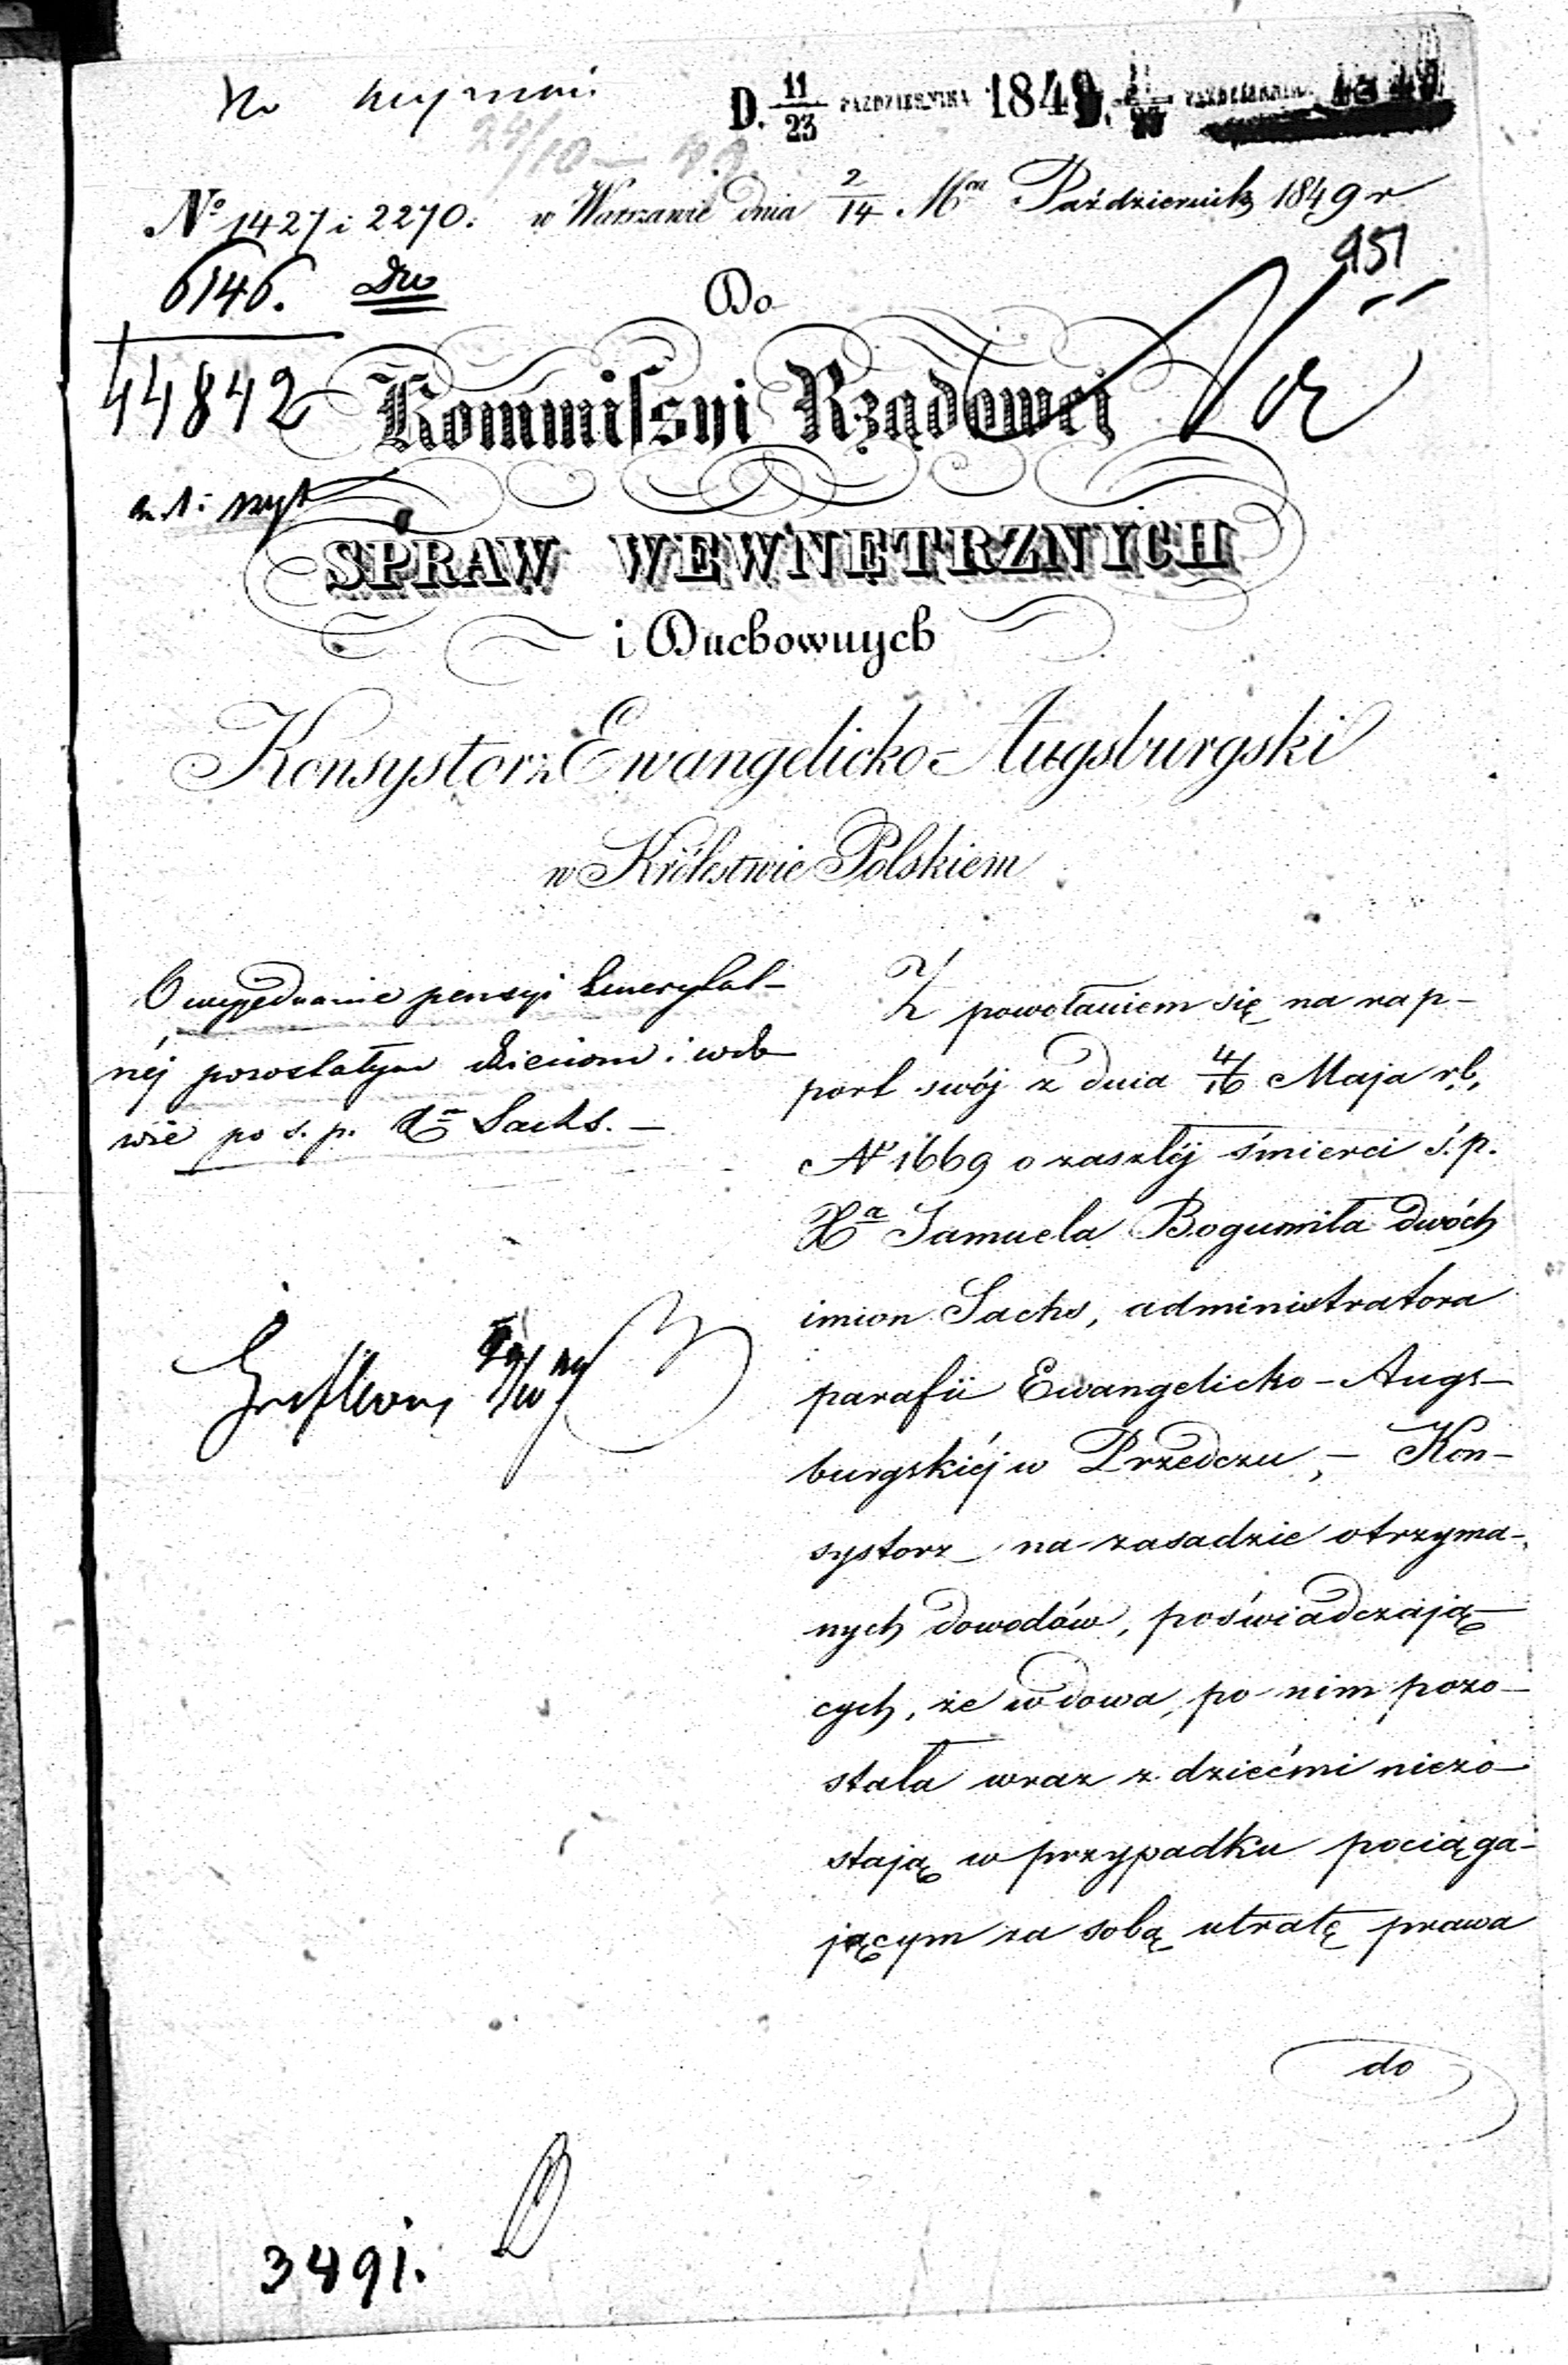 D. 11/23 PAŹDZIERNIKA 1849
24/10
No 1427 i 2270. w Warszawie dnia 2/14 M Październik 1849 r
951
6146.
44842
Do
Kommissyi Rządowej
SPRAW WEWNĘTRZNYCH
i Duchownych
Konsystorz Ewangelicko-Augsburgski
w Królestwie Polskiem
O wyjednanie pensyi Emerytal-
néj pozostałym dzieciom i wdo-
wie po s. p. Xa Sachs. —
Z powołaniem się na rap-
port swój z dnia 4/16 Maja r.b.
No 1669 o zaszłéj śmierci ś.p.
Xa Samuela Bogumiła dwóch
imion Sachs, administratora
parafii Ewangelicko-Augs-
burgskiéj w Przedczu, — Kon-
systorz na zasadzie otrzyma-
nych dowodów, poświadczają-
cych, że wdowa po nim pozo-
stała wraz z dziećmi niezo-
stają w przypadku pociąga-
jącym za sobą utratę prawa
do
3491.